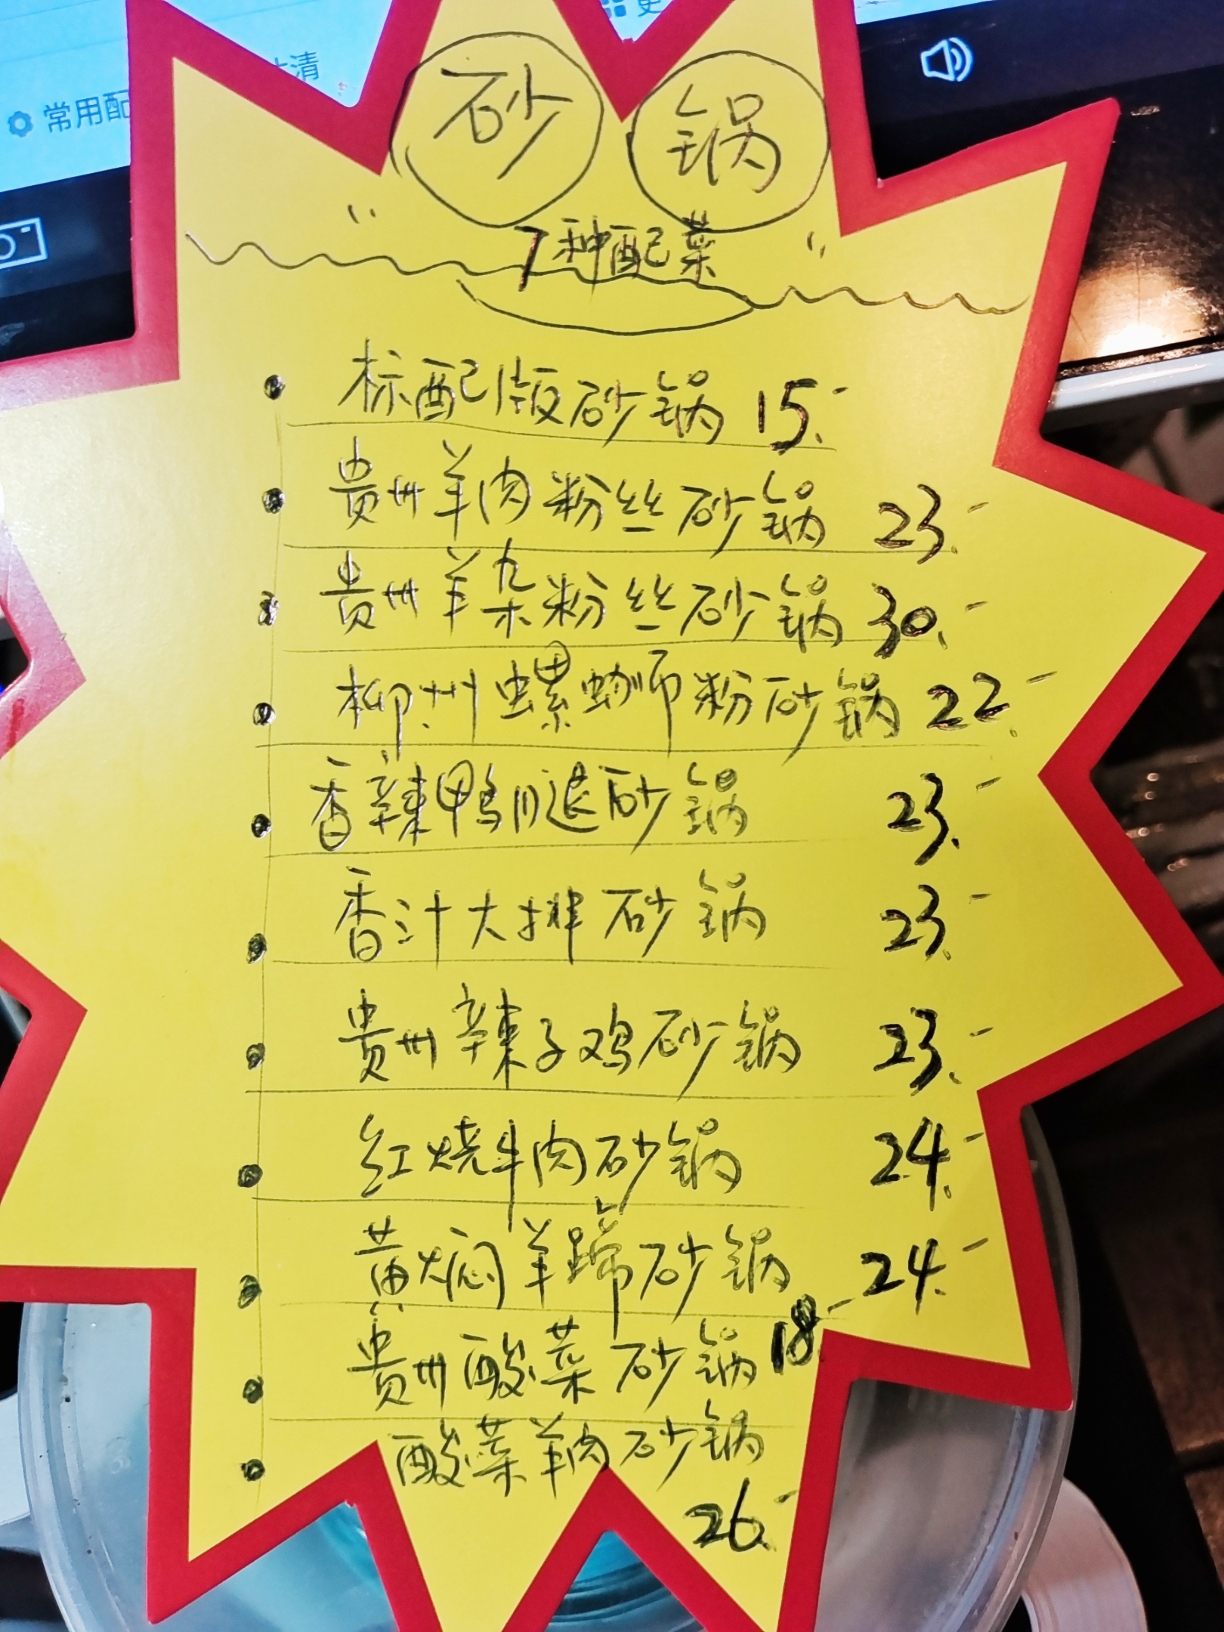 清
常用配
砂锅
7种配菜
标配版砂锅 15.-
贵州羊肉粉丝砂锅 23.-
贵州羊杂粉丝砂锅 30.-
柳州螺蛳粉砂锅 22.-
香辣鸭腿砂锅 23.-
香汁大排砂锅 23.-
贵州辣子鸡砂锅 23.-
红烧牛肉砂锅 24.-
黄焖羊蹄砂锅 24.-
贵州酸菜砂锅 18.-
酸菜羊肉砂锅
26.-